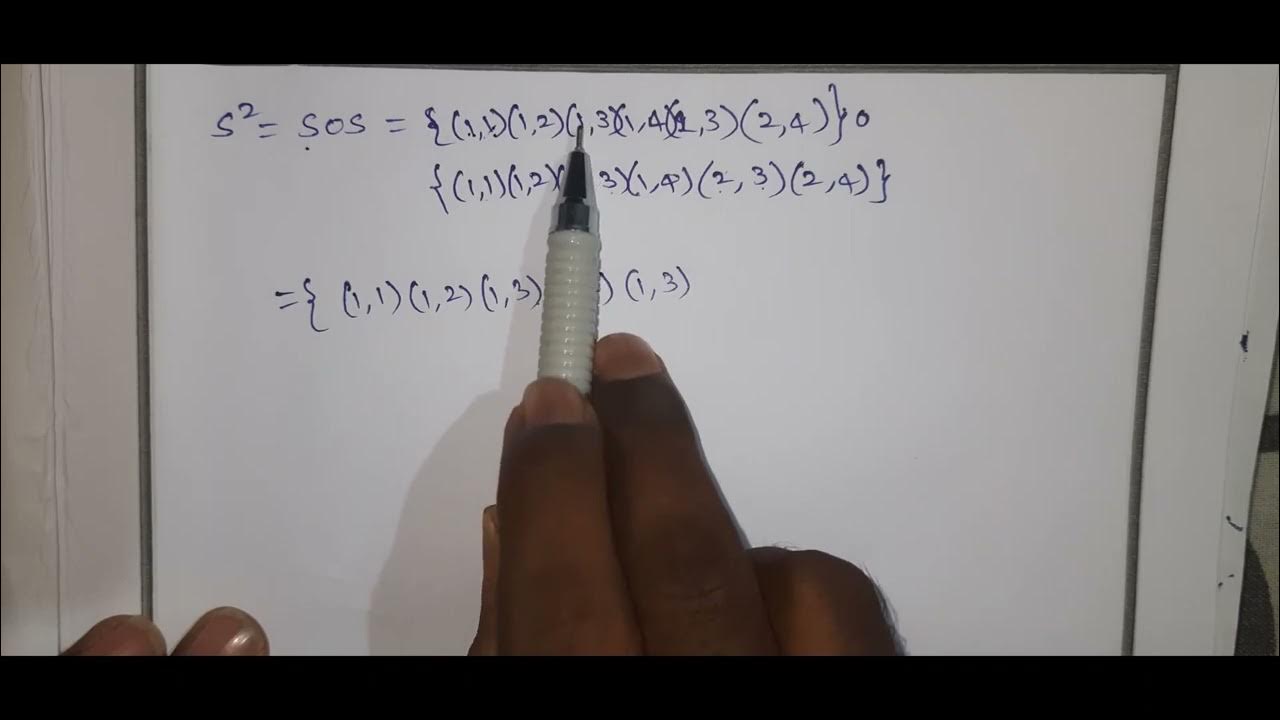 S² = SOS = {(1,1)(1,2)(1,3)(1,4)(2,3)(2,4)}o
{(1,1)(1,2)( 3)(1,4)(2,3)(2,4)}
={ (1,1)(1,2)(1,3) ) (1,3)